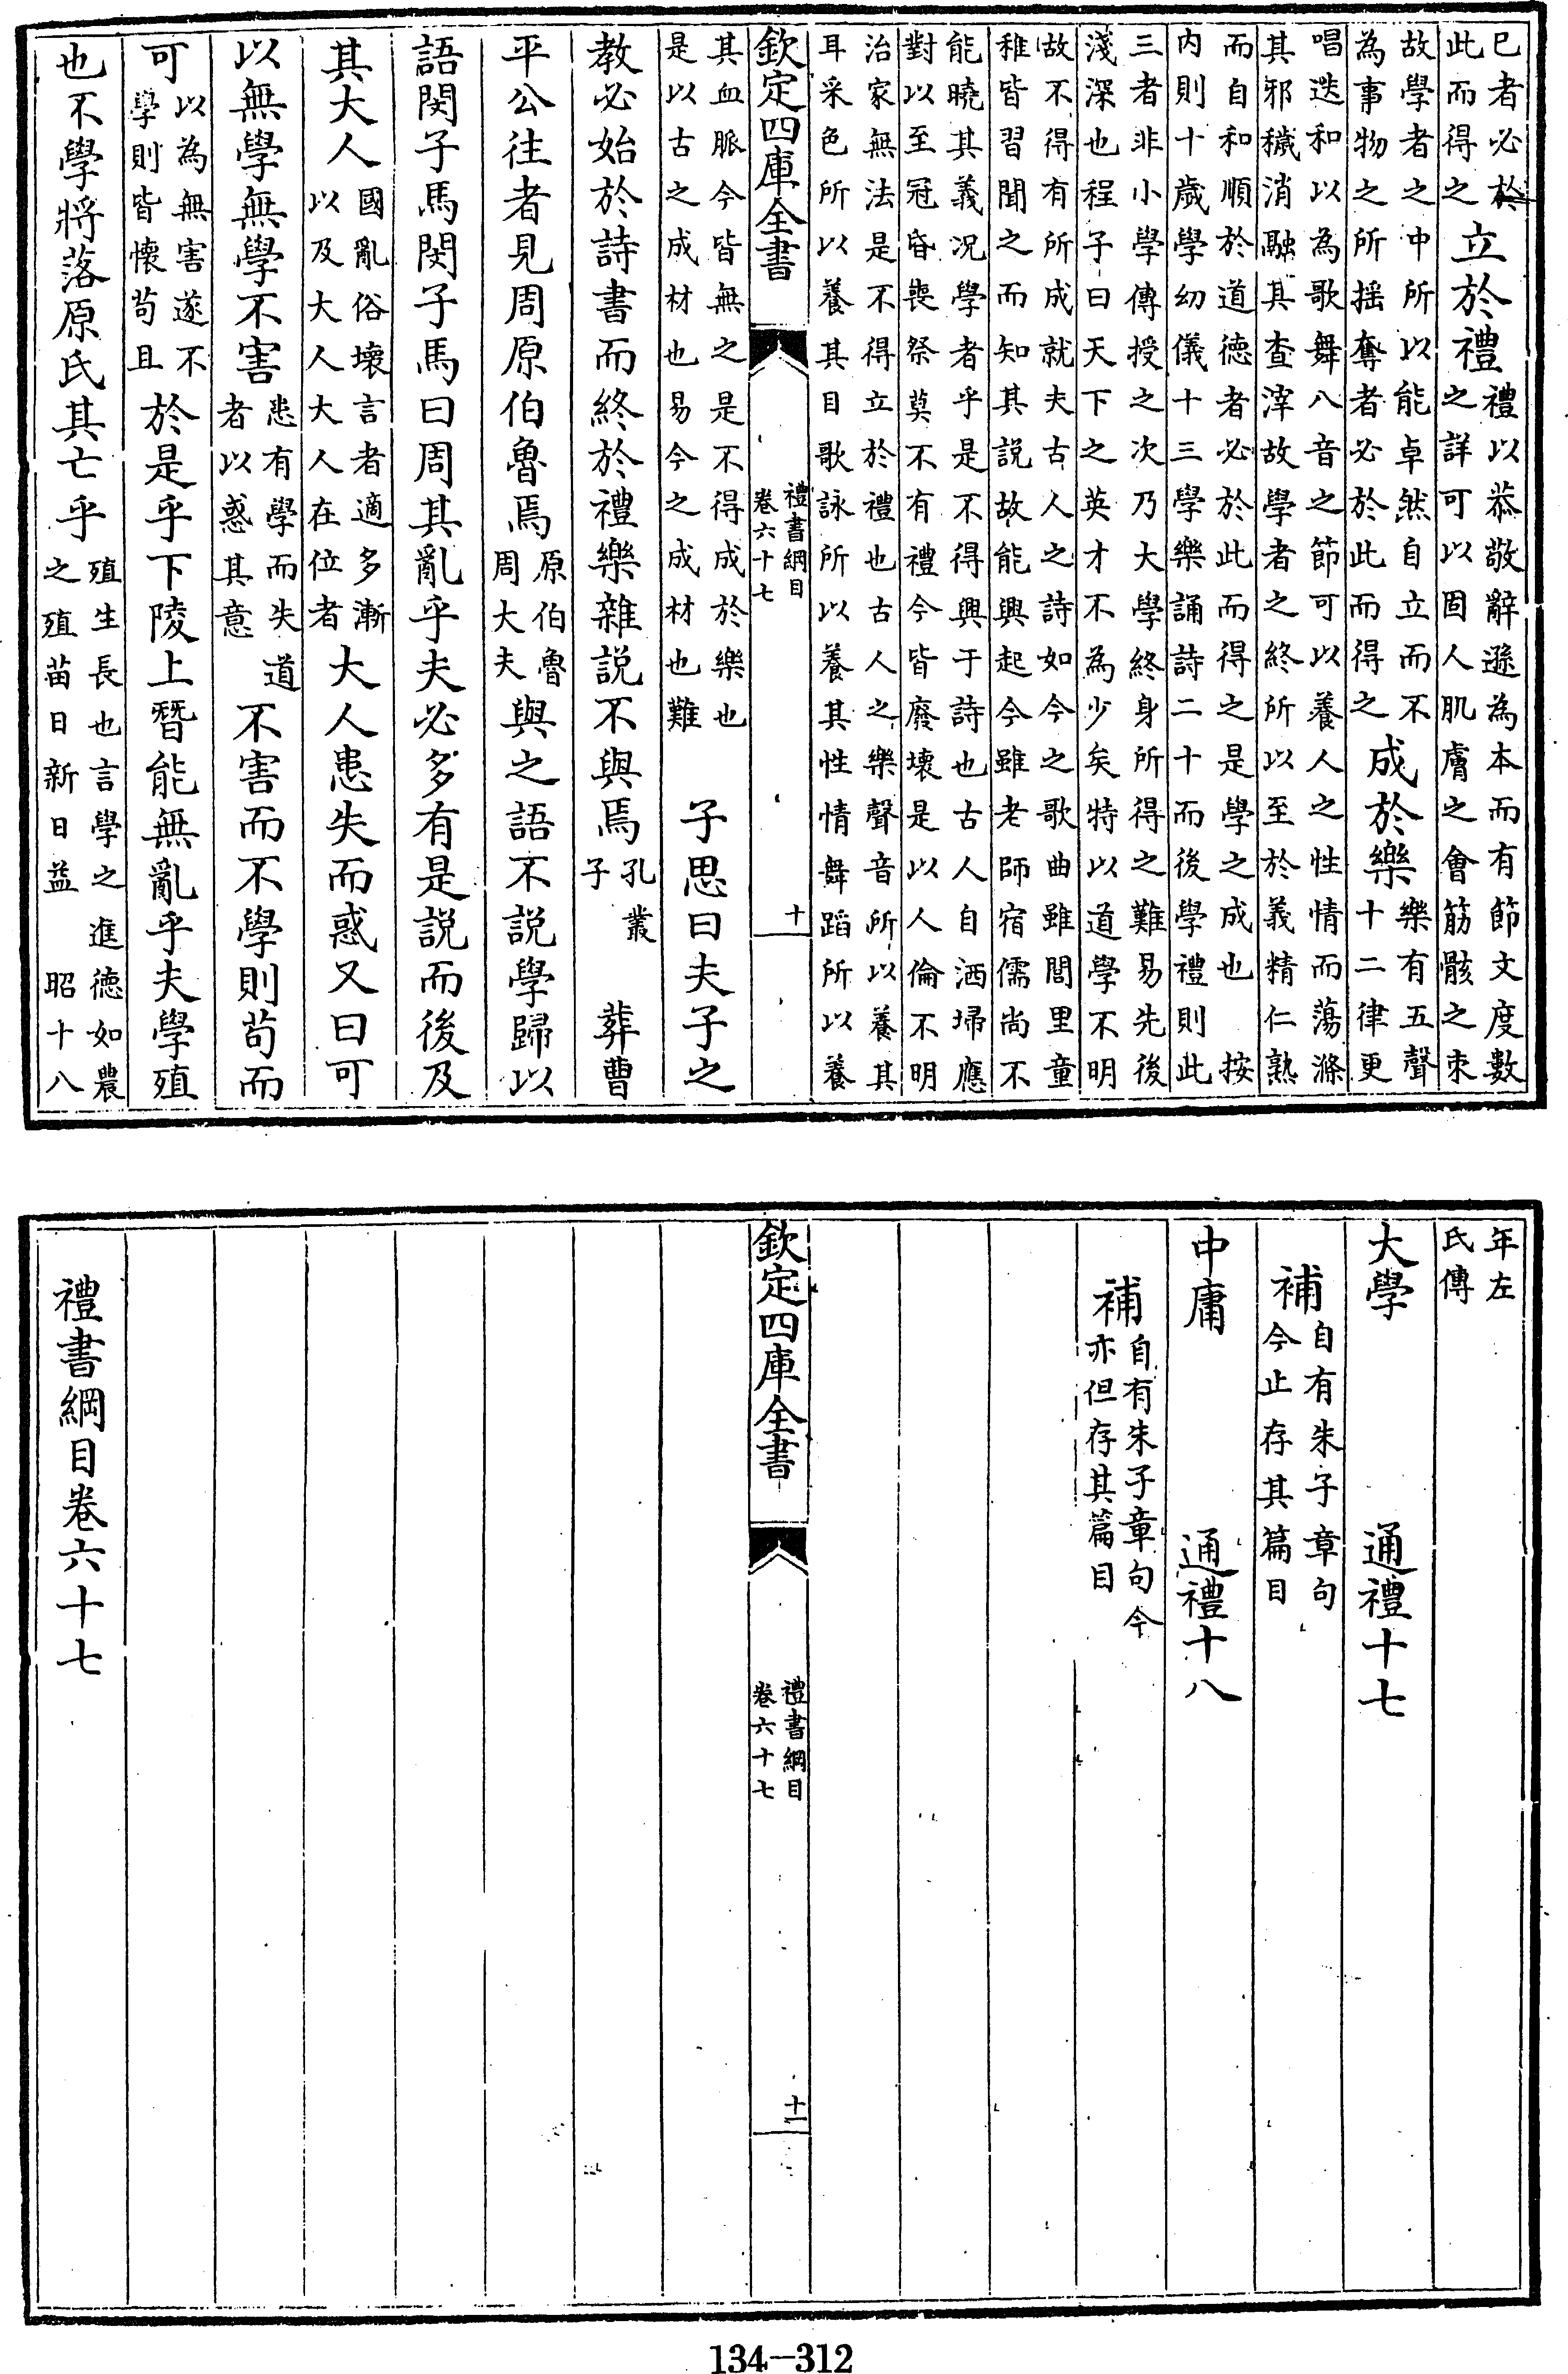 已者必於
此而得之立於禮禮以恭敬辭遜為本而有節文度數
之詳可以固人肌膚之會筋骸之束
故學者之中所以能卓然自立而不
為事物之所揺奪者必於此而得之成於樂樂有五聲
十二律更
唱迭和以為歌舞八音之節可以養人之性情而蕩滌
其邪穢消融其查滓故學者之終所以至於義精仁熟
而自和順於道徳者必於此而得之是學之成也 按
内則十歲學幼儀十三學樂誦詩二十而後學禮則此
三者非小學傳授之次乃大學終身所得之難易先後
淺深也程子曰天下之英才不為少矣特以道學不明
故不得有所成就夫古人之詩如今之歌曲雖閭里童
稚皆習聞之而知其説故能興起今雖老師宿儒尚不
能曉其義况學者乎是不得興于詩也古人自洒埽應
對以至冠昏喪祭莫不有禮今皆廢壞是以人倫不明
治家無法是不得立於禮也古人之樂聲音所以養其
耳采色所以養其目歌詠所以養其性情舞蹈所以養
欽定四庫全書
禮書綱目
卷六十七
十
其血脈今皆無之是不得成於樂也
是以古之成材也易今之成材也難 子思曰夫子之
教必始於詩書而終於禮樂雜説不與焉孔叢
子 葬曹
平公往者見周原伯魯焉原伯魯
周大夫與之語不説學歸以
語閔子馬閔子馬曰周其亂乎夫必多有是説而後及
其大人國亂俗壞言者適多漸
以及大人大人在位者大人患失而惑又曰可
以無學無學不害患有學而失道
者以惑其意不害而不學則苟而
可以為無害遂不
學則皆懷苟且於是乎下陵上替能無亂乎夫學殖
也不學將落原氏其亡乎殖生長也言學之進徳如農
之殖苗日新日益 昭十八
年左
氏傳
大學 通禮十七
補自有朱子章句
今止存其篇目
中庸 通禮十八
補自有朱子章句今
亦但存其篇目
欽定四庫全書
禮書綱目
卷六十七
十一
禮書綱目卷六十七
134-312